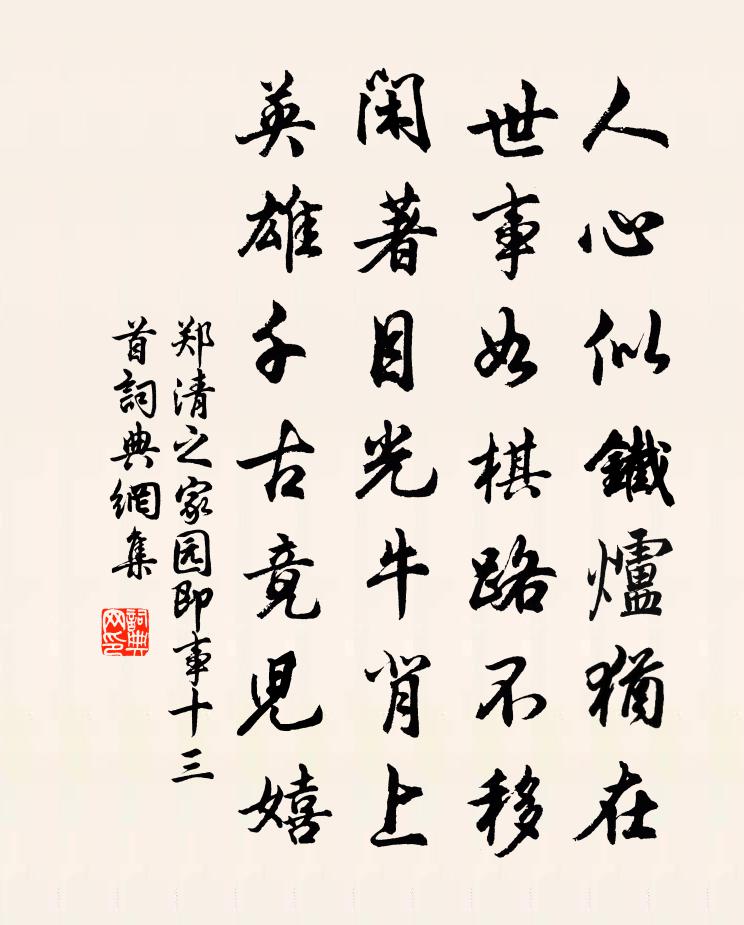 人心似鐵爐猶在
世事如棋路不移
閑著目光牛背上
英雄千古竟兒嬉
郑清之家园即事十三
首詞典網集
詞典網印